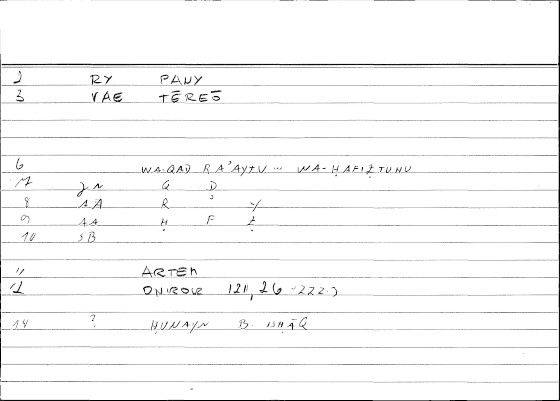 2 RY PANY
3 VAE TĒREŌ
6 WA-QAD RAʾAYTU ... WA-ḤAFIẒTUHU
7 Q D
8 AA R ʾ Y
9 AA Ḥ F Ẓ
10 SB
11 ARTEM
12 ONIROCR 121, 26 -222.
14 ? ḤUNAYN B. ISḤĀQ